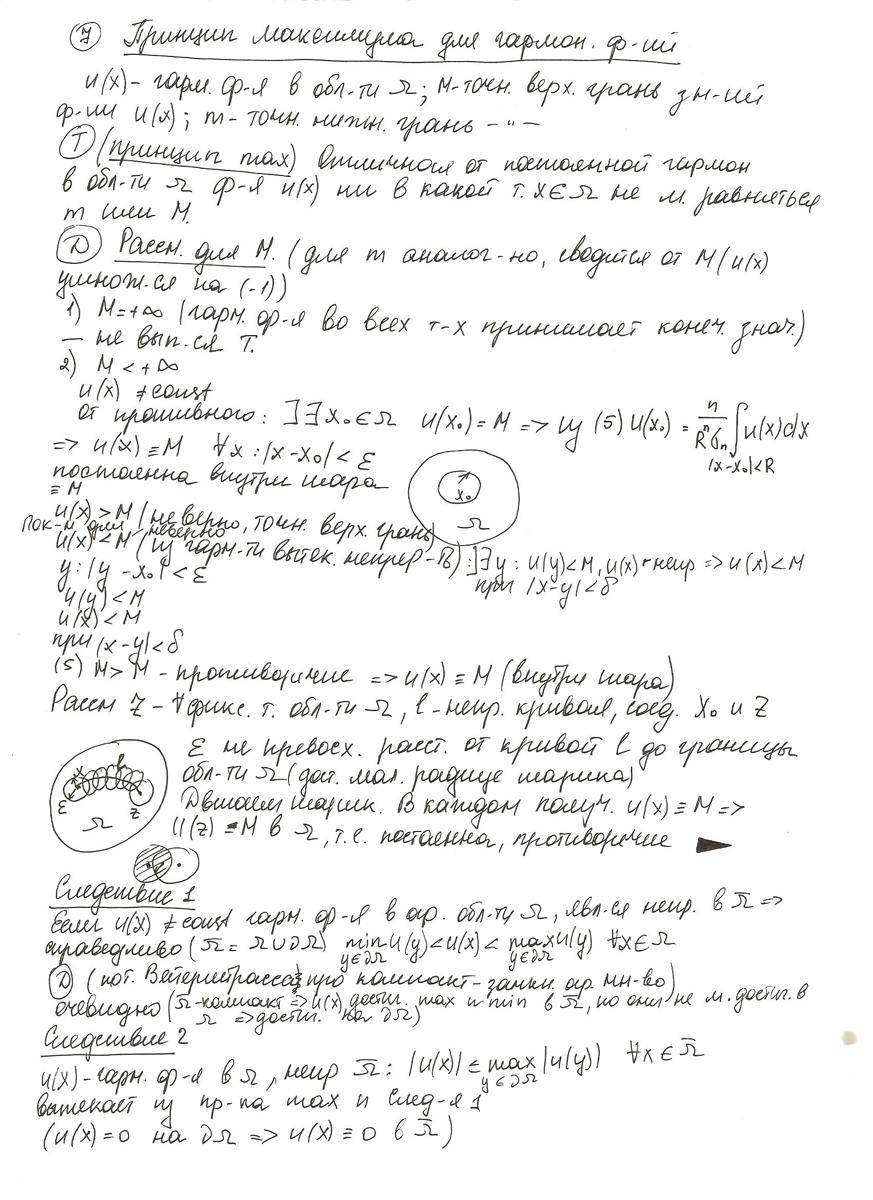 ⑦ Принцип максимума для гармон. ф-ий
u(x) – гарм. ф-я в обл-ти Ω; M – точн. верх. грань зн-ий
ф-ии u(x); m – точн. нижн. грань –"–
Ⓣ (принцип max) Отличная от постоянной гармон
в обл-ти Ω ф-я u(x) ни в какой т. x∈Ω не м. равняться
m или M.
Ⓓ Рассм. для M. (для m аналог-но, сводится от M (u(x)
умнож-ся на (-1))
1) M=+∞ (гарм. ф-я во всех т-х принимает конеч. знач.)
– не вып-ся Т.
2) M < +∞
u(x) ≠ const
От противного: ]∃x₀∈Ω u(x₀) = M => из (5) u(x₀) = n/(Rⁿσₙ) ∫ u(x)dx
|x-x₀|<R
=> u(x) ≡ M ∀x : |x-x₀| < ε
постоянна внутри шара
≡ M
x₀
Ω
u(x) > M (неверно, точн. верх. грань)
Пок-м для неверно
u(x) < M (из гарм-ти вытек. непрер-ть) : ]∃y : u(y)<M, u(x) - непр => u(x)<M
при |x-y|<δ
y : |y - x₀| < ε
u(y) < M
u(x) < M
при |x-y|<δ
(5) M > M – противоречие => u(x) ≡ M (внутри шара)
Рассм Z – ∀ фикс. т. обл-ти Ω, l – непр. кривая, соед. x₀ и Z
ε не превосх. расст. от кривой l до границы
обл-ти Ω (дост. мал. радиус шарика)
Двигаем шарик. В каждом получ. u(x) ≡ M =>
u(z) ≡ M в Ω, т.е. постоянна, противоречие
ε x l z
Ω
Следствие 1
Если u(x) ≠ const гарм. ф-я в огр. обл-ти Ω, явл-ся непр. в Ω̅ =>
справедливо (Ω̅ = Ω∪∂Ω) min u(y) < u(x) < max u(y) ∀x∈Ω
y∈∂Ω y∈∂Ω
Ⓓ (по т. Вейерштрасса про компакт – замкн. огр. мн-во)
очевидно (Ω̅ - компакт => u(x) достиг. max и min в Ω̅, но они не м. достиг. в
Ω => достиг. на ∂Ω)
Следствие 2
u(x) – гарм. ф-я в Ω, непр Ω̅ : |u(x)| ≤ max |u(y)| ∀x∈Ω̅
y∈∂Ω
вытекает из пр-па max и след-я 1
(u(x) = 0 на ∂Ω => u(x) ≡ 0 в Ω̅)